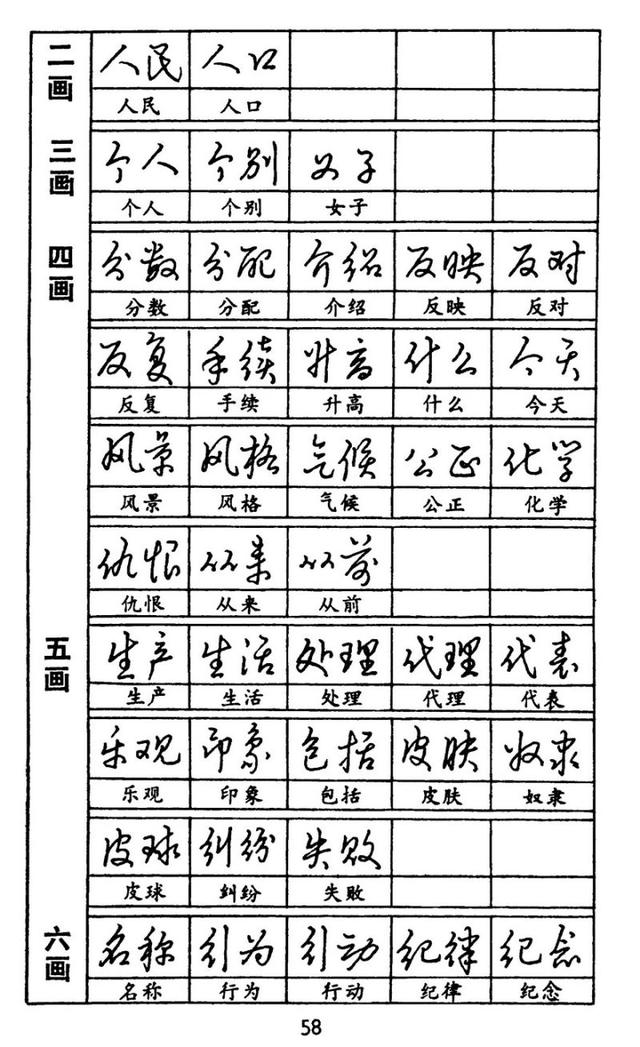 二画
人民 人口
人民 人口
三画
个人 个别 女子
个人 个别 女子
四画
分数 分配 介绍 反映 反对
分数 分配 介绍 反映 反对
反复 手续 升高 什么 今天
反复 手续 升高 什么 今天
风景 风格 气候 公正 化学
风景 风格 气候 公正 化学
仇恨 从来 从前
仇恨 从来 从前
五画
生产 生活 处理 代理 代表
生产 生活 处理 代理 代表
乐观 印象 包括 皮肤 奴隶
乐观 印象 包括 皮肤 奴隶
皮球 纠纷 失败
皮球 纠纷 失败
六画
名称 行为 行动 纪律 纪念
名称 行为 行动 纪律 纪念
58